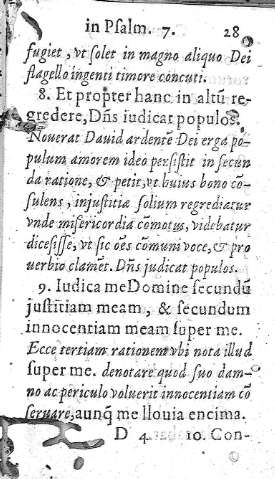 in Psalm. 7. 28
fugiet, vt solet in magno aliquo Dei
flagello ingenti timore concuti.
8. Et propter hanc in altũ re-
gredere, Dñs iudicat populos.
Nouerat Dauid ardentẽ Dei erga po-
pulum amorem ideo persistit in secun
da ratione, & petit, vt huius bono cõ-
sulens, injustitiæ solium regrediatur
vnde misericordia cõmotus, videbatur
dicesisse, vt sic oẽs comuni voce, & pro
uerbio clamẽt. Dñs judicat populos.
9. Iudica me Domine secundũ
justitiam meam, & secundum
innocentiam meam super me.
Ecce tertiam rationem vbi nota illud
super me. denotare quod suo dam-
no ac periculo voluerit innocentiam cõ
seruare, aunq̃ me llouia encima.
D 4 10. Con-